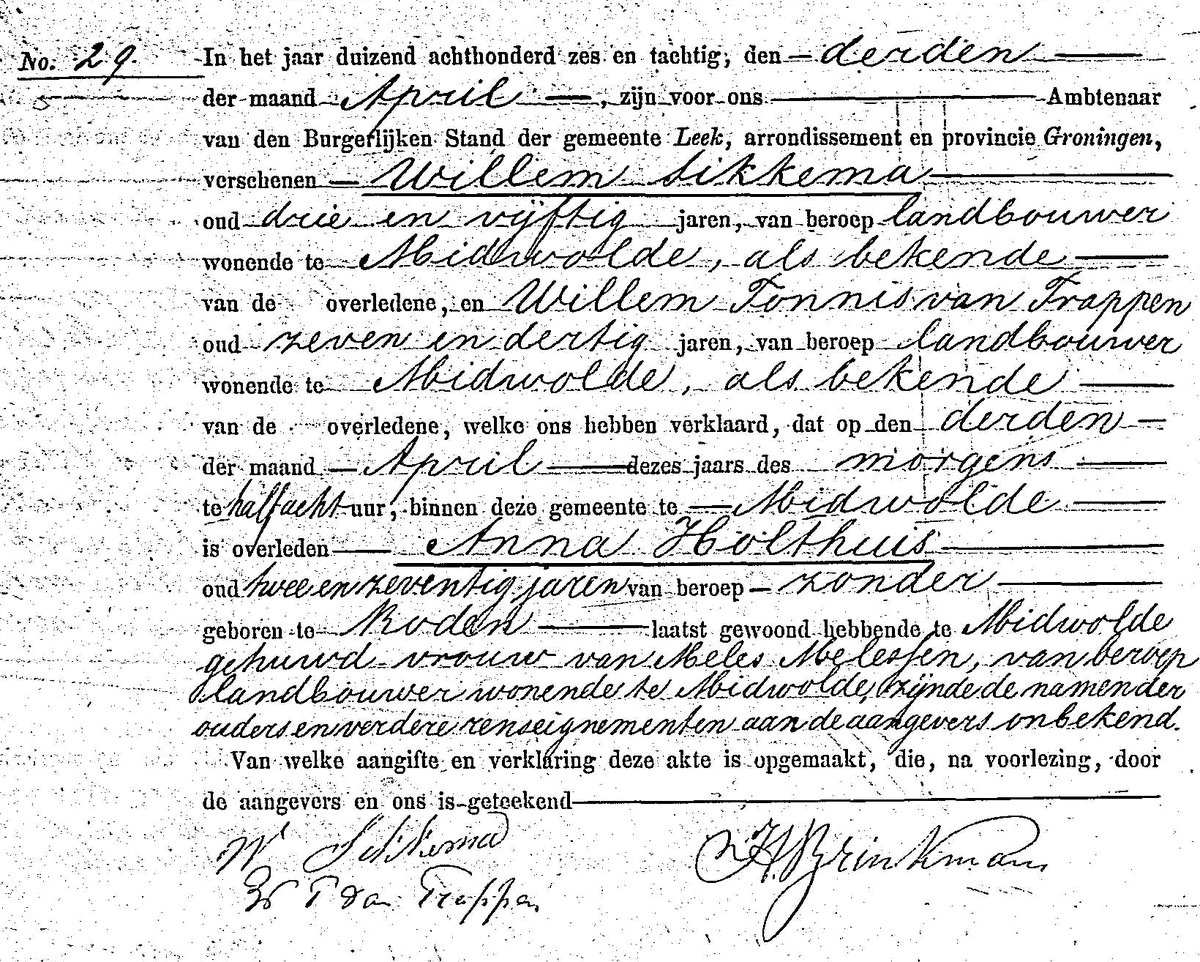 No. 29. In het jaar duizend achthonderd zes en tachtig, den derden
der maand April, zijn voor ons Ambtenaar
van den Burgerlijken Stand der gemeente Leek, arrondissement en provincie Groningen,
verschenen Willem Sikkema
oud drie en vijftig jaren, van beroep landbouwer
wonende te Midwolde, als bekende
van de overledene, en Willem Tonnis van Trappen
oud zeven en dertig jaren, van beroep landbouwer
wonende te Midwolde, als bekende
van de overledene, welke ons hebben verklaard, dat op den derden
der maand April dezes jaars des morgens
te half acht uur, binnen deze gemeente te Midwolde
is overleden Anna Holthuis
oud twee en zeventig jaren van beroep zonder
geboren te Roden laatst gewoond hebbende te Midwolde
gehuwd vrouw van Meles Melessen, van beroep
landbouwer wonende te Midwolde, zijnde de namen der
ouders en verdere renseignementen aan de aangevers onbekend.
Van welke aangifte en verklaring deze akte is opgemaakt, die, na voorlezing, door
de aangevers en ons is geteekend
W Sikkema
W T van Trappen
H Brinkman